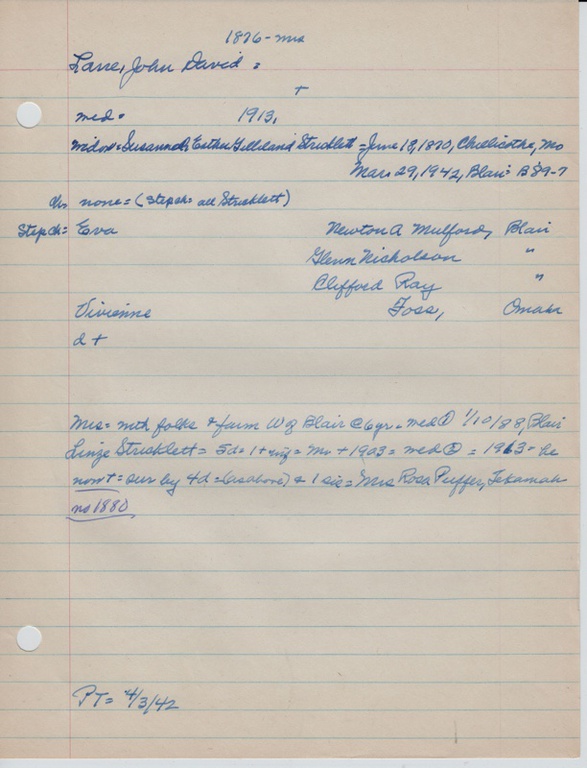 1876 - mrs
Lane, John David =
+
med = 1913,
widow = Susannah Esther Gilleland Stricklett = June 18, 1870, Chillicothe, Mo
Mar. 29, 1942, Blair = B 89-7
Ch none = (Stepch = all Stricklett)
Stepch = Eva Newton A Mulford, Blair
Glenn Nicholson "
Clifford Ray "
Vivienne Foss, Omaha
d +
Mrs = with folks to farm W of Blair @ 6 yr = med ① 1/10/88, Blair
Linze Stricklett = 5d = 1 + inf = Mr + 1903 = med ② = 1913 - he
now + = sur by 4d = (as above) & 1 sis = Mrs Rosa Puffer, Tekamah
no 1880
PT = 4/3/42